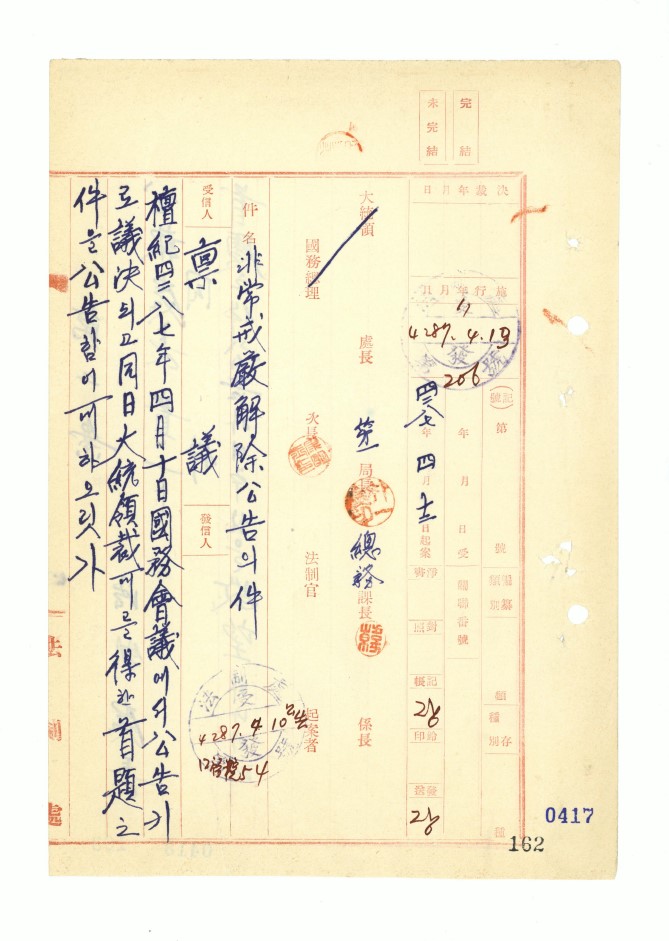 完結
未完結
決裁年月日
施行年月日
4287.4.13
發
號
206
記號
第
號
年 月 日 受
關聯番號
編纂類別
題
種別
存
四二八七年四月十三日起案
淨書
對照
記帳
鈐印
發送
大統領
處長
第一局長
總務課長
係長
國務總理
次長
法制官
起案者
法制處
發
4287.4.10
54
件名 非常戒嚴解除公告의件
受信人
發信人
稟議
檀紀四二八七年四月十日國務會議에서公告키
로議決되고同日大統領裁可를得한首題之
件을公告함이可하오릿가
法制處
0417
162